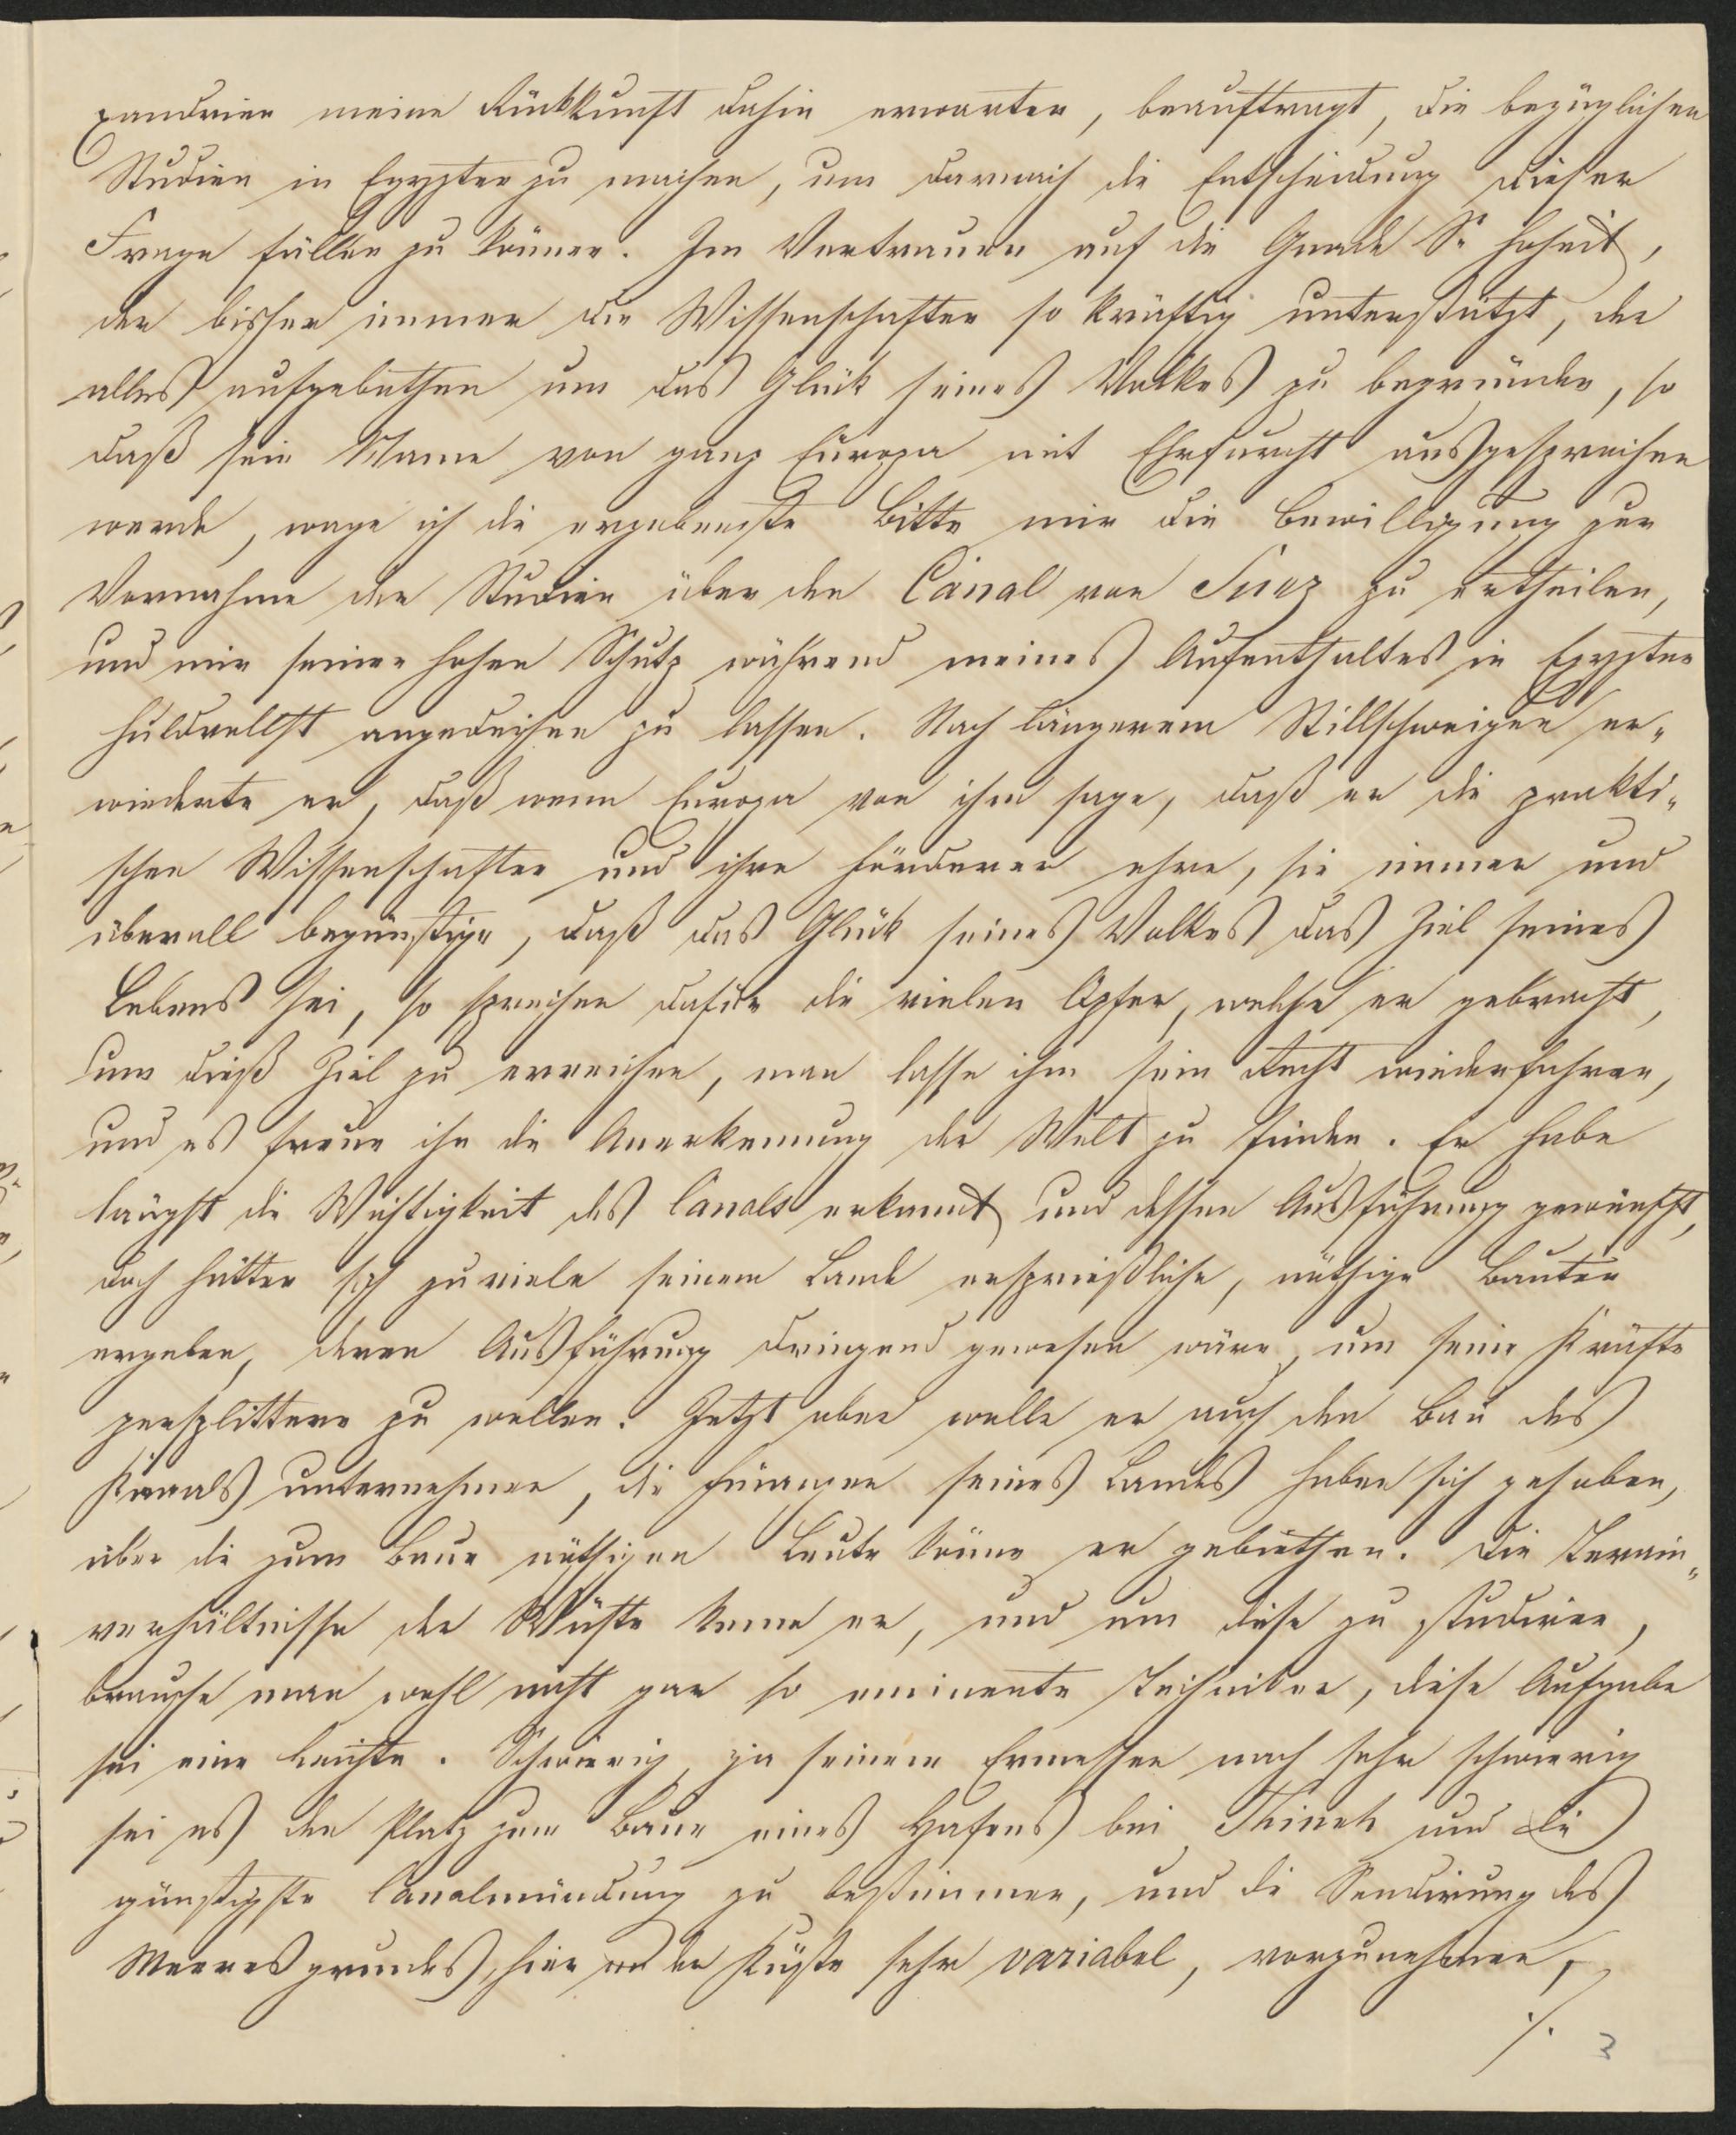 xandrien meine Rückkunft dahin erwarten, beauftragt, die bezüglichen
Studien in Egypten zu machen, um darnach die Entscheidung dieser
Frage fällen zu können. Im Vertrauen auf die Gnade Sr Hoheit,
der bisher immer die Wissenschaften so kräftig unterstützt, der
alles aufgebothen um das Glück seines Volkes zu begründen, so
daß sein Name von ganz Europa mit Ehrfurcht ausgesprochen
werde, wage ich die ergebenste Bitte mir die Bewilligung zur
Vornahme der Studien über den Canal von Suez zu ertheilen,
und mir seinen hohen Schutz während meines Aufenthaltes in Egypten
huldvollst angedeihen zu lassen. Nach längerem Stillschweigen er„
wiederte er, daß wenn Europa von ihm sage, daß er die prakti„
schen Wissenschaften und ihre Förderer ehre, sie immer und
überall begünstige, daß das Glück seines Volkes das Ziel seines
Lebens sei, so sprechen dafür die vielen Opfer, welche er gebracht,
um dieß Ziel zu erreichen, man lasse ihm sein Recht wiederfahren,
und es freue ihn die Anerkennung der Welt zu finden. Er habe
längst die Wichtigkeit des Canals erkannt und dessen Ausführung gewünscht,
doch hätten sich zu viele seinem Lande ersprießliche, nöthige Bauten
ergeben, deren Ausführung dringend gewesen wäre, um seine Kräfte
zersplittern zu wollen. Jetzt aber wolle er auch den Bau des
Kanals unternehmen, die Finanzen seines Landes haben sich gehoben,
über die zum Baue nöthigen Leute könne er gebiethen. Die Terrain„
verhältnisse der Wüste kenne er, und um diese zu studiren,
brauche man wohl nicht gar so eminente Techniker, diese Aufgabe
sei eine leichte. Schwierig, ja seinem Ermessen nach sehr schwierig
sei es den Platz zum Baue eines Hafens bei Thineh und die
günstigste Canalmündung zu bestimmen, und die Sondirung des
Meeresgrundes, hier an der Küste sehr variabel, vorzunehmen,
./.
3